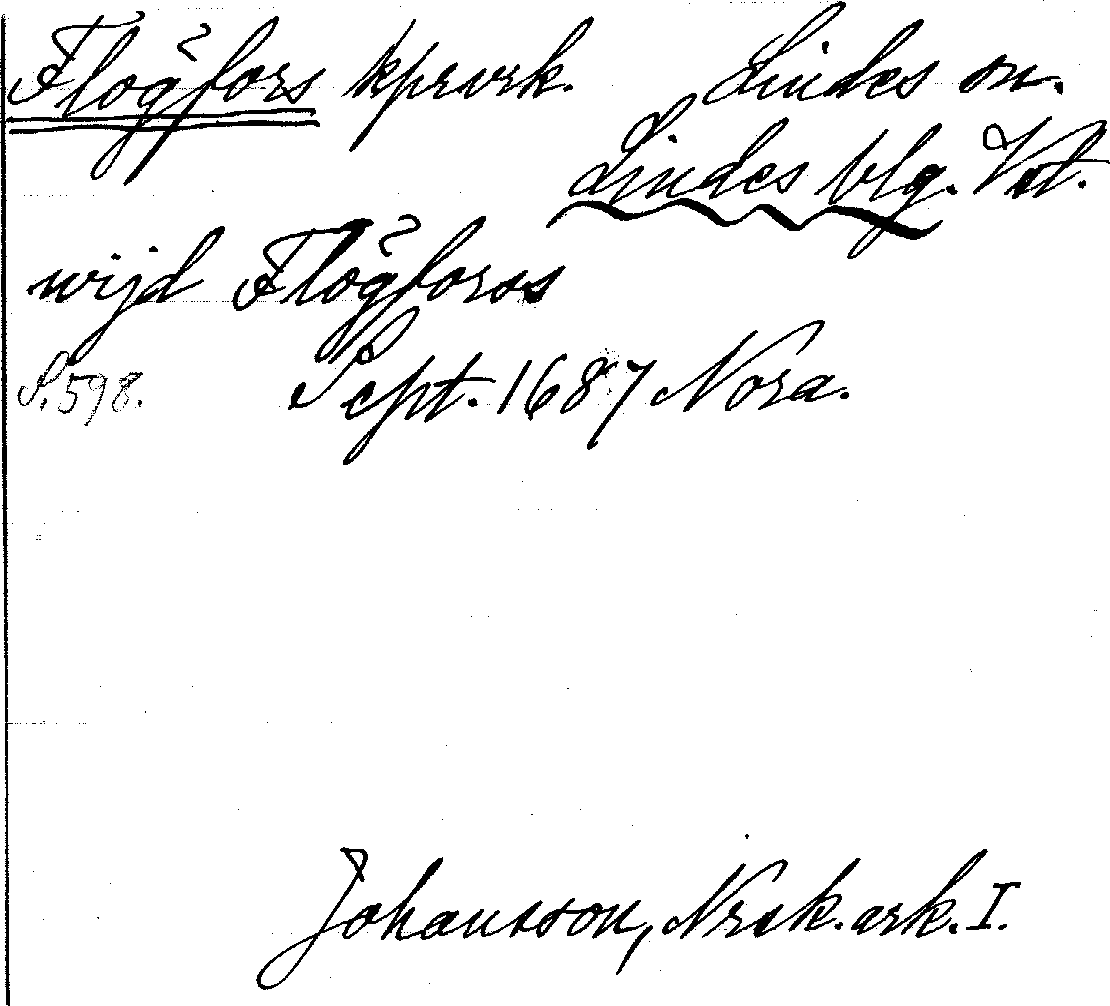 Flögfors kprvrk. Lindes sn.
Lindes blg. Vst.
wijd Flögforss
S. 598. Sept. 1687 Nora.
Johansson, Nrsk. ark. I.